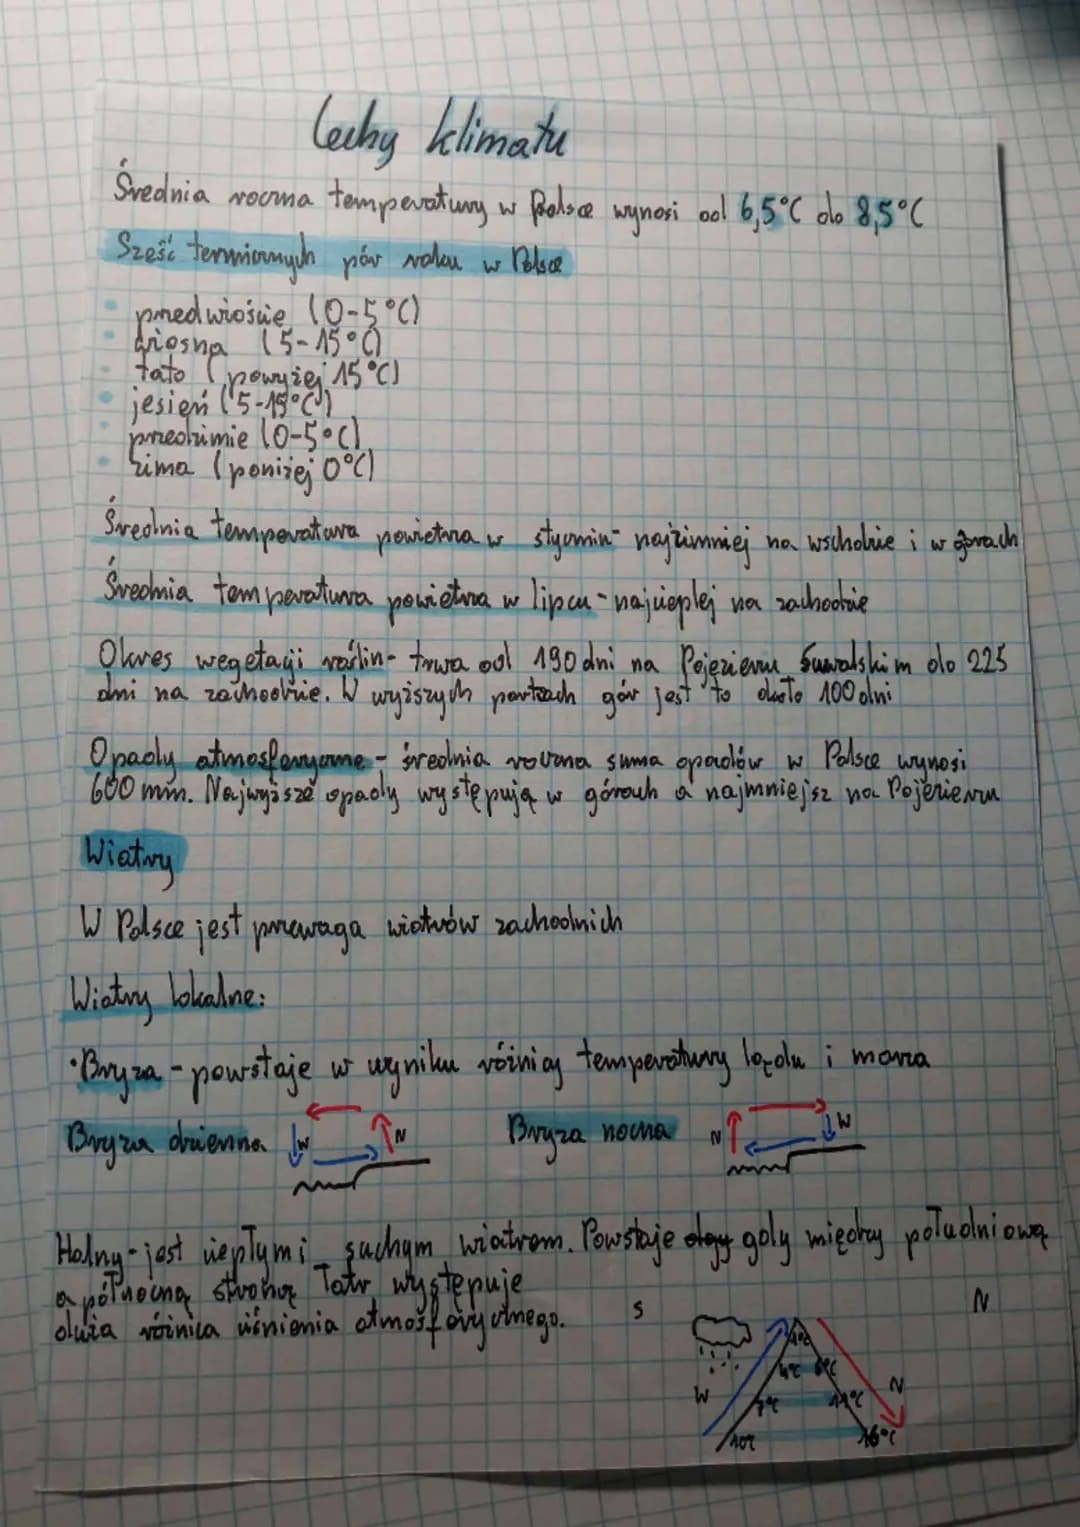 Cechy klimatu
Średnia roczna temperatury w Polsce wynosi od 6,5°C do 8,5°C
Sześć termicznych pór roku w Polsce
• przedwiośnie (0-5°C)
• wiosna (5-15°C)
• lato (powyżej 15°C)
• jesień (5-15°C)
• przedzimie (0-5°C)
• zima (poniżej 0°C)
Średnia temperatura powietrza w styczniu - najzimniej na wschodzie i w górach
Średnia temperatura powietrza w lipcu - najcieplej na zachodzie
Okres wegetacji roślin - trwa od 190 dni na Pojezierzu Suwalskim do 225
dni na zachodzie. W wyższych partiach gór jest to około 100 dni
Opady atmosferyczne - średnia roczna suma opadów w Polsce wynosi
600 mm. Najwyższe opady występują w górach a najmniejsz na Pojezierzu
Wiatry
W Polsce jest przewaga wiatrów zachodnich
Wiatry lokalne:
• Bryza - powstaje w wyniku różnicy temperatury lądu i morza
Bryza dzienna W N Bryza nocna N W
Halny - jest ciepłym i suchym wiatrem. Powstaje gdy między południową
a północną stroną Tatr występuje
duża różnica ciśnienia atmosferycznego.
S N
1°C
4°C 6°C
W 7°C 11°C N
10°C 16°C